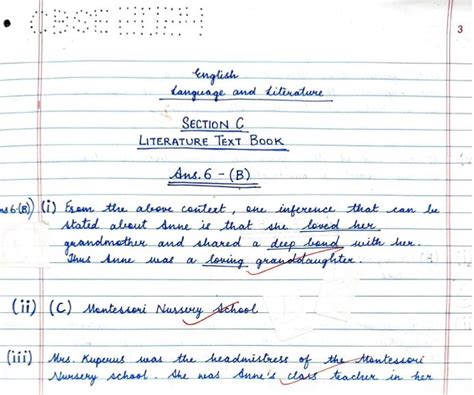 CBSE
3
English
Language and Literature
SECTION C
LITERATURE TEXT BOOK
Ans. 6 - (B)
(i) From the above context, one inference that can be
stated about Anne is that she loved her
grandmother and shared a deep bond with her.
Thus Anne was a loving granddaughter.
(ii) (C) Montessori Nursery School
(iii) Mrs. Kuperus was the headmistress of the Montessori
Nursery school. She was Anne's class teacher in her